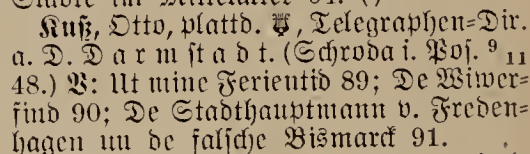 Kuß, Otto, plattd. Telegraphen=Dir.
a. D. Darmstadt. (Schroda i. Pos. 9 11
48.) V: Ut mine Ferientid 89; De Wiwer=
find 90; De Stadthauptmann v. Freden=
hagen un de falsche Bismarck 91.